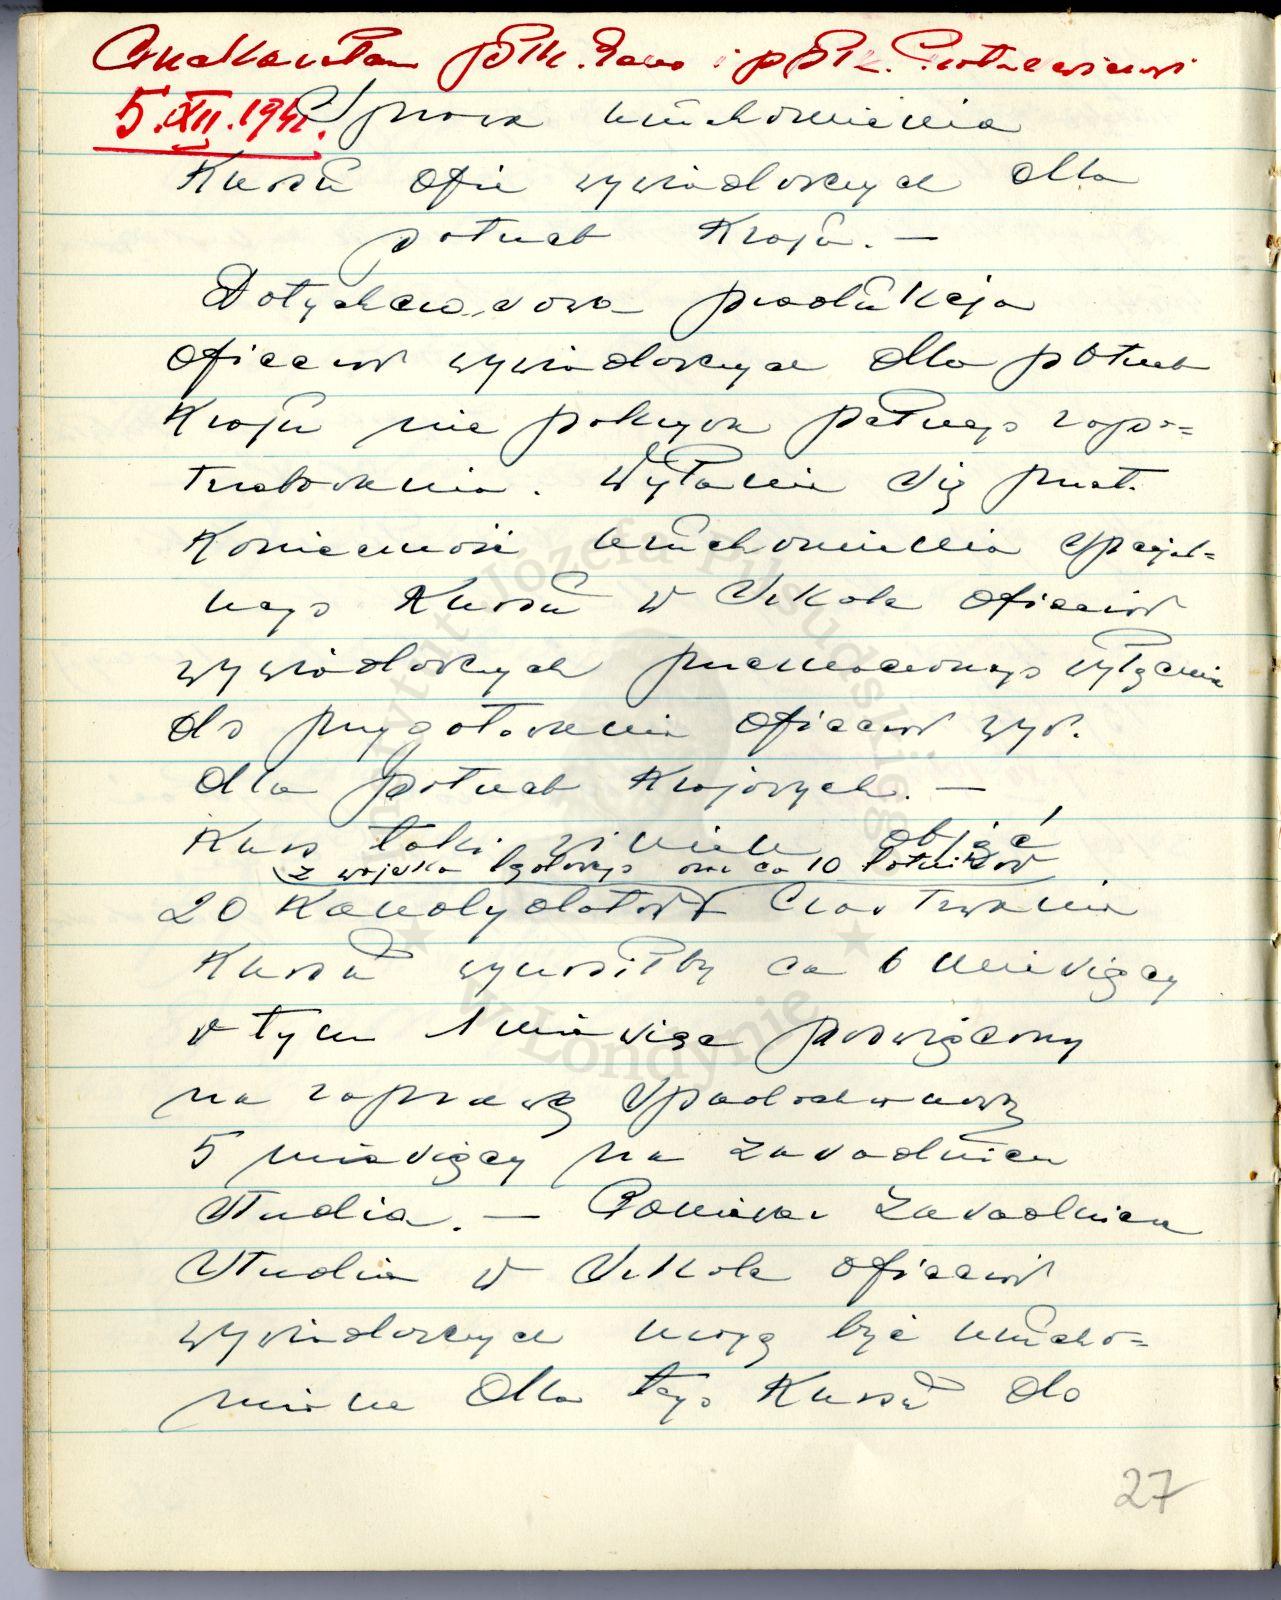 5.XII.1941. Sprawa uruchomienia
Kursu ofic wywiadowczych dla
potrzeb Kraju. —
Dotychczasowa produkcja
oficerów wywiadowczych dla potrzeb
Kraju nie pokrywa pełnego zapo=
trzebowania. Wyłania się przeto
Konieczność uruchomienia specjal=
nego Kursu w Szkole oficerów
wywiadowczych przeznaczonego wyłącznie
do przygotowania oficerów wyw.
dla potrzeb Krajowych. —
Kurs taki winien objąć
z wojska lądowego oraz ca 10 lotników
20 Kandydatów Czas trwania
Kursu wynosiłby ca 6 miesięcy
w tym 1 miesiąc poświęcony
na zaprawę spadochronową
5 miesięcy na zasadnicze
studia. — Ponieważ zasadnicze
studia w Szkole oficerów
wywiadowczych mogą być urucho=
mione dla tego Kursu do
27
Instytut Józefa Piłsudskiego
w Londynie